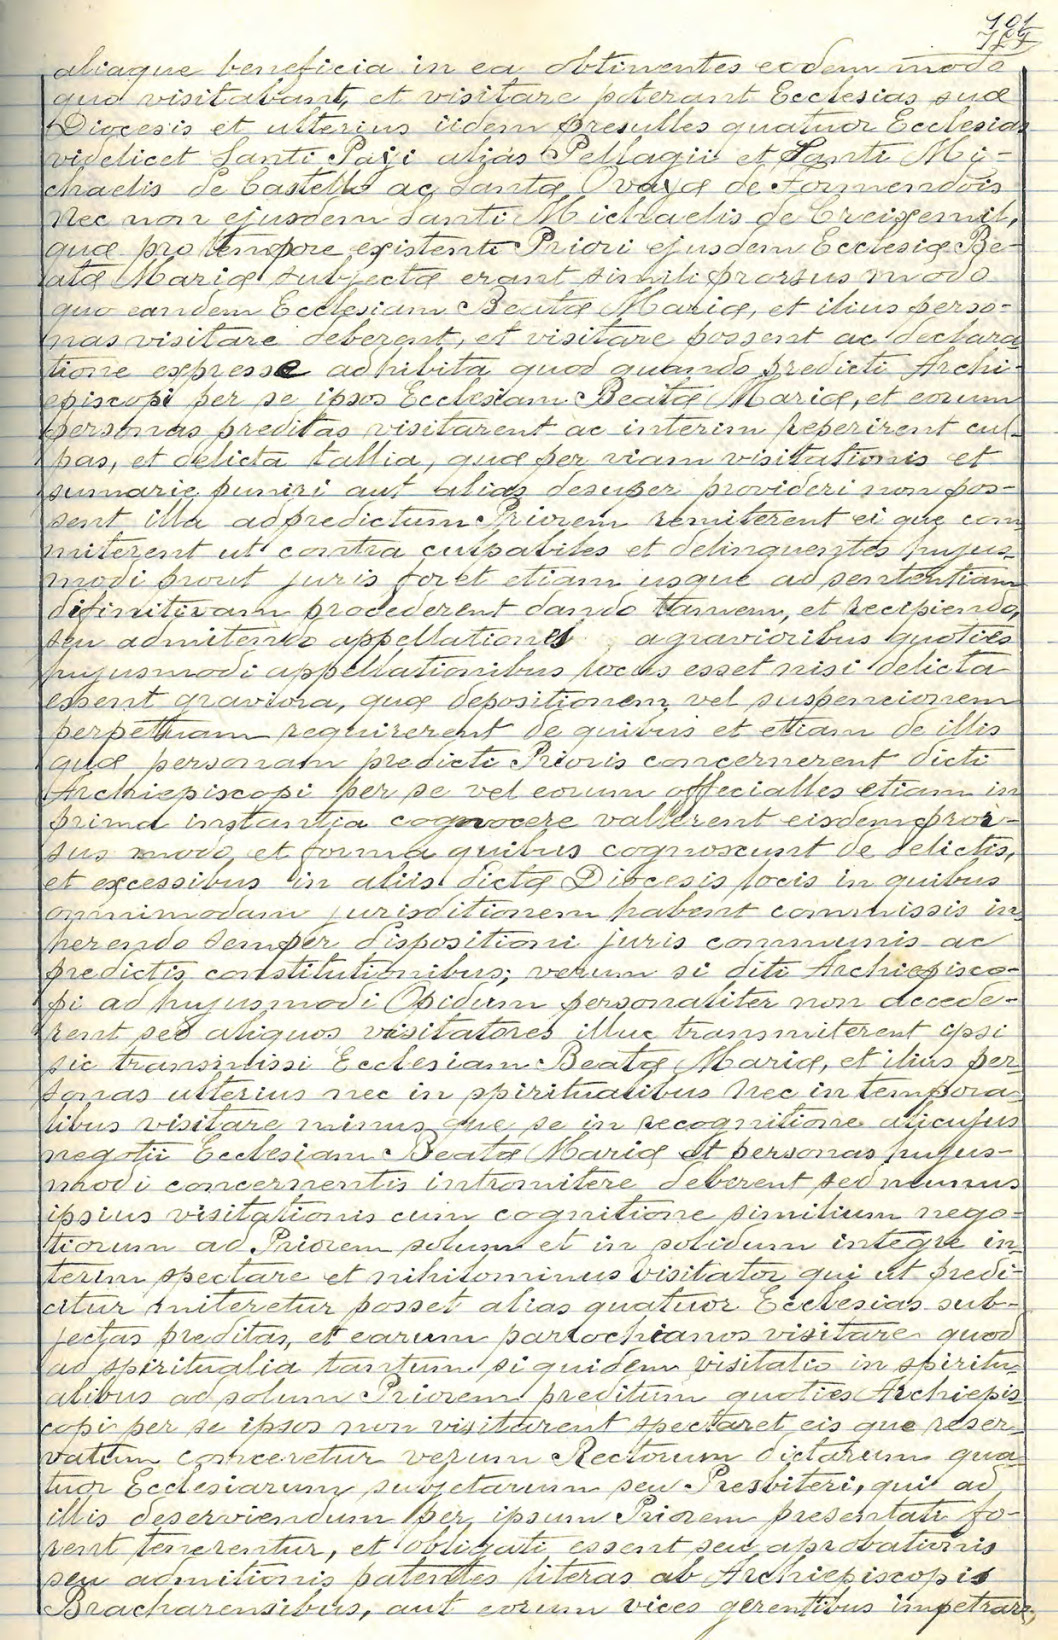 101
aliaque beneficia in ea obtinentes eodem modo
quo visitabant, et visitare poterant Ecclesias suæ
Diocesis et ulterius iidem presulles quatuor Ecclesias
videlicet Santi Paji aliàs Pellagii et Santi Mi-
chaelis de Castello ac Santæ Ovayæ de Formendois
nec non ejusdem Santi Michaelis de Creixemil,
quæ pro tempore existenti Priori ejusdem Ecclesiæ Be-
atæ Mariæ subjectæ erant simili prorsus modo
quo eandem Ecclesiam Beatæ Mariæ, et ilius perso-
nas visitare deberent, et visitare possent ac declara-
tione expresse adhibita quod quando predicti Archi-
episcopi per se ipsos Ecclesiam Beatæ Mariæ, et eorum
personas preditas visitarent ac interim reperirent cul-
pas, et delicta tallia, quæ per viam visitationis et
sumarie puniri aut alias desuper provideri non pos-
sent illa ad predictum Priorem remiterent ei que com
miterent ut contra culpabiles et delinquentes hujus-
modi prout juris foret etiam usque ad sententiam
difinitivam procederent dando tamem, et recipiendo,
seu admitendo appellationes agravioribus quoties
hujusmodi appellationibus locus esset nisi delicta
essent graviora, quæ depositionem vel suspencionem
perpettuam requirerent de quibus et etiam de illis
quæ personam predicti Prioris concernerent dicti
Archiepiscopi per se vel eorum offecialles etiam in
prima instantia cognocere vallerent eisdem pror-
sus modo, et forma quibus cognoscunt de delictis,
et excessibus in aliis dictæ Diocesis locis in quibus
ommimodam jurisditionem habent commissis in
herendo semper dispositioni juris communis ac
predictis constitutionibus; verum si diti Archiepisco-
pi ad hujusmodi Opidum personaliter non accede-
rent sed aliquos visitatores illuc transmiterent ipsi
sic transmissi Ecclesiam Beatæ Mariæ, et ilius per-
sonas ulterius nec in spiritualibus nec in tempora-
libus visitare minus que se in recognitione alicujus
negotii Ecclesiam Beatæ Mariæ et personas hujus-
modi concernentis intromitere deberent sed munus
ipsius visitationis cum cognitione similium nego-
tiorum ad Priorem solum et in solidum integre in-
terim spectare et nihilominus visitator qui ut predi-
citur miteretur posset alias quatuor Ecclesias sub-
jectas preditas, et earum parrochianos visitare quod
ad spiritualia tantum siquidem visitatio in spiritu-
alibus ad solum Priorem preditum quoties Archiepis
copi per se ipsos non visitarent spectaret eis que reser-
vatum conceretur verum Rectorum dictarum qua-
tuor Ecclesiarum subjetarum seu Presbiteri, qui ad
illis deserviendum per ipsum Priorem presentati fo-
rent tenerentur, et obligati essent seu aprobationis
seu admitionis patentes literas ab Archiepiscopis
Bracharensibus, aut eorum vices gerentibus impetrare,